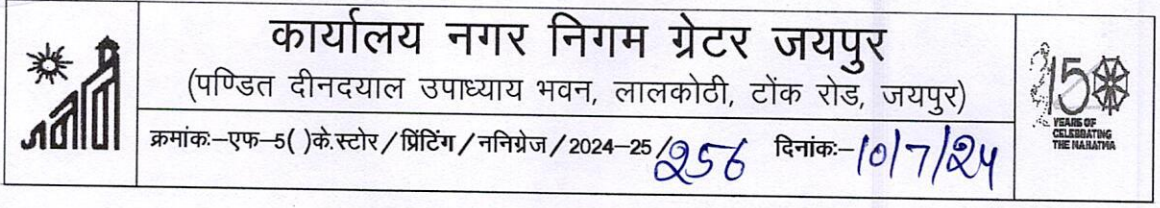 कार्यालय नगर निगम ग्रेटर जयपुर
(पण्डित दीनदयाल उपाध्याय भवन, लालकोठी, टोंक रोड, जयपुर)
क्रमांक:–एफ–5( )के.स्टोर/प्रिंटिंग/ननिग्रेज/2024–25/256 दिनांक:–10/7/24
150
YEARS OF
CELEBRATING
THE MAHATMA